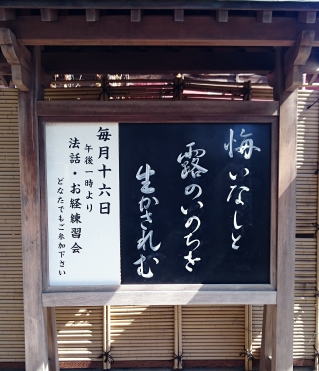 悔いなしと
露のいのちを
生かされむ
毎月十六日
午後一時より
法話・お経練習会
どなたでもご参加下さい